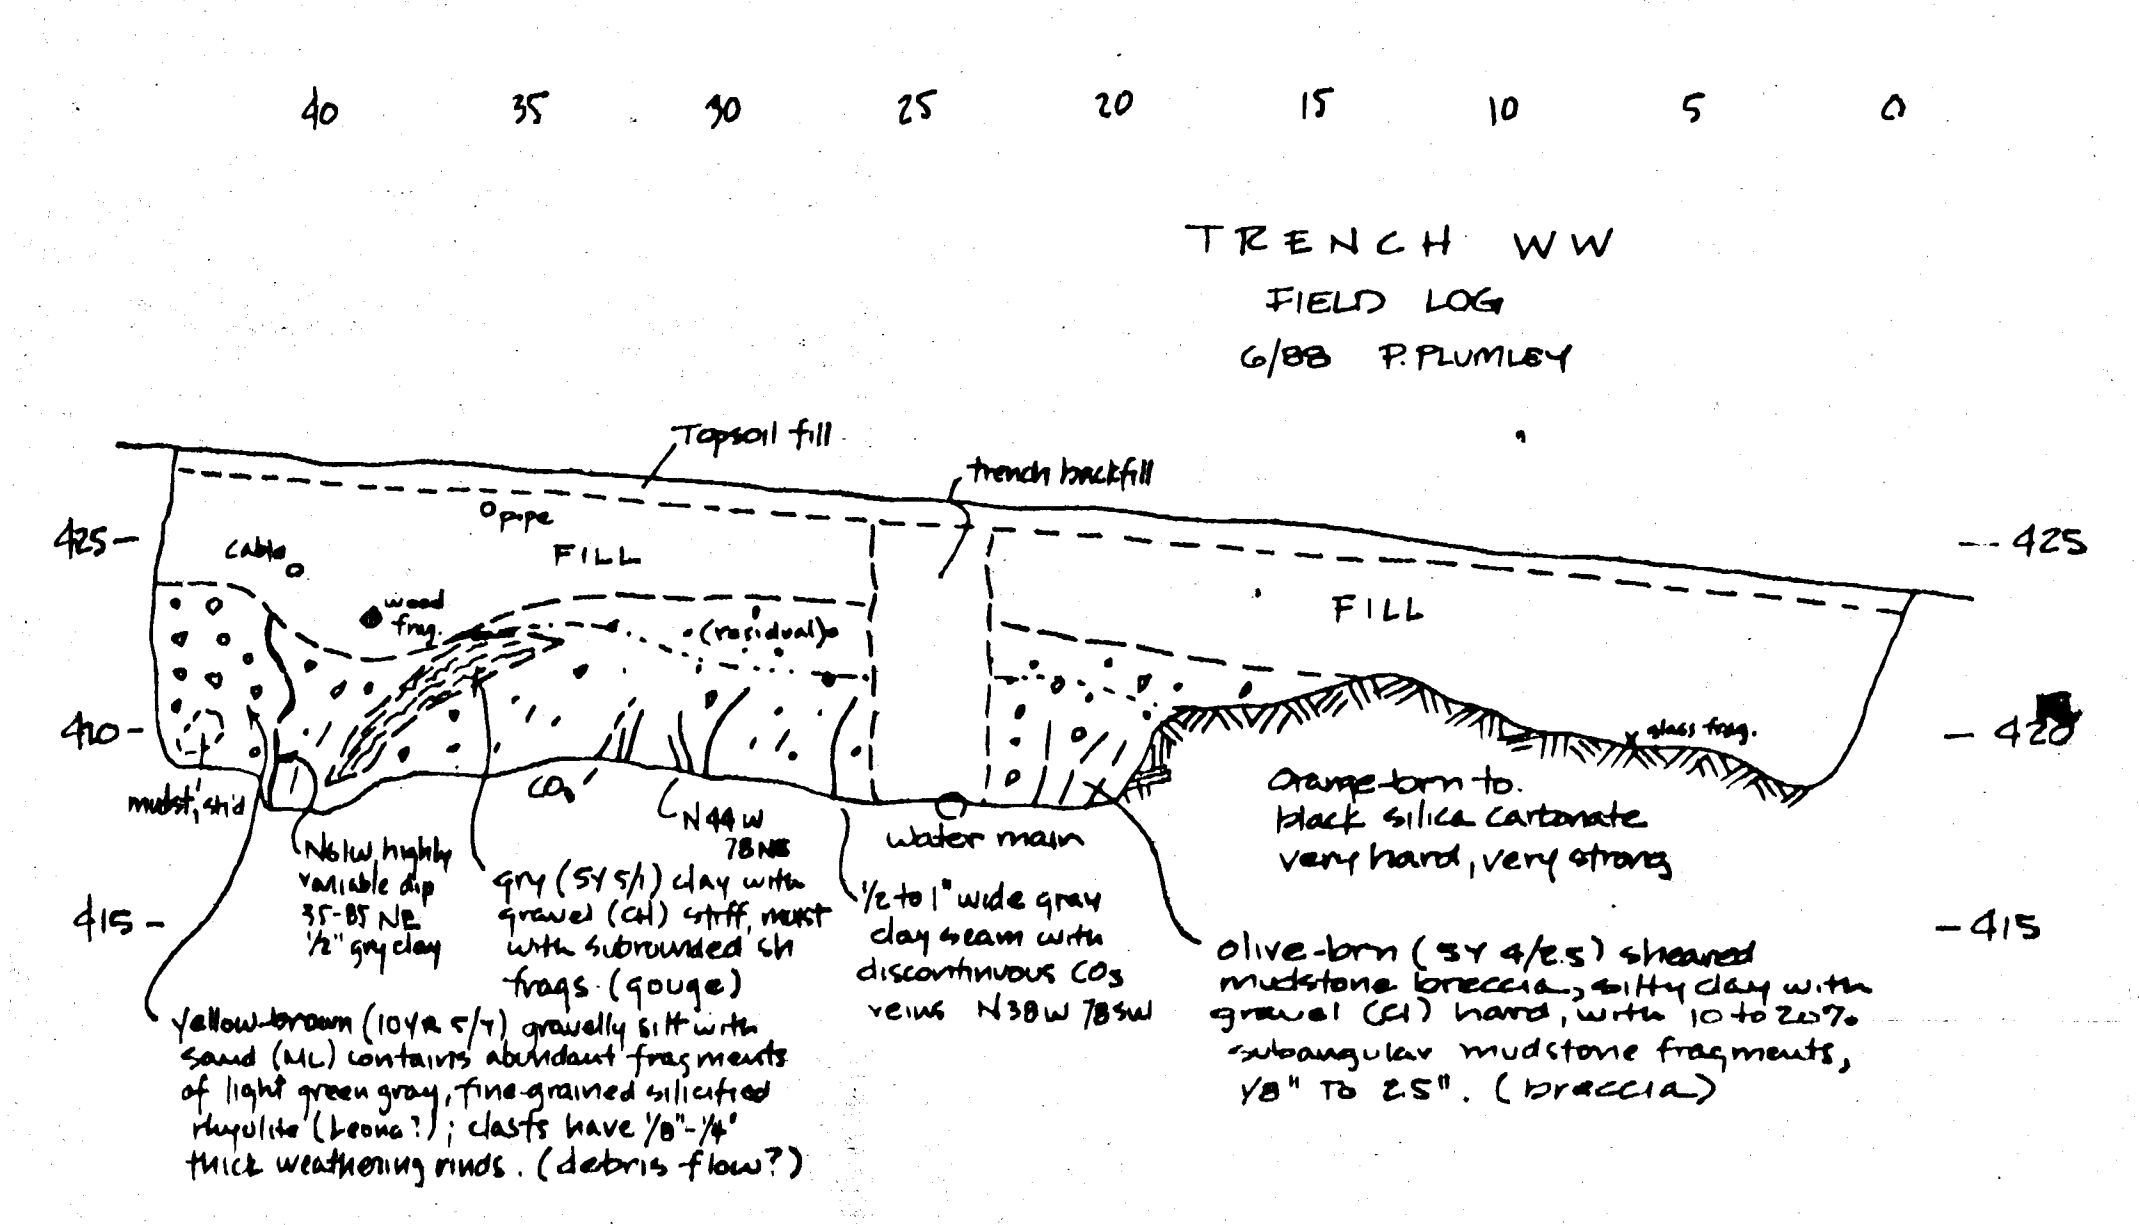 40 35 30 25 20 15 10 5 0
TRENCH WW
FIELD LOG
6/88 P. PLUMLEY
Topsoil fill
trench backfill
pipe
425
425
cable
FILL
FILL
wood
frag.
(residual)
420
420
glass frag.
mudst, sh'd
CO3
N44W
78NE
water main
Orange-brn to
black silica carbonate
very hard, very strong
415
415
N61W, highly
variable dip
35-85 NE
1/2" gry clay
gry (5Y 5/1) clay with
gravel (CH) stiff, moist
with subrounded sh
frags. (gouge)
1/2 to 1" wide gray
clay seam with
discontinuous CO3
veins N38W 78SW
olive-brn (5Y 4/2.5) sheared
mudstone breccia, silty clay with
gravel (Cl) hard, with 10 to 20%
subangular mudstone fragments,
1/8" TO 2.5". (breccia)
Yellow-brown (10YR 5/4) gravelly silt with
sand (ML) contains abundant fragments
of light green gray, fine-grained silicified
rhyolite (Leona?); clasts have 1/8"-1/4"
thick weathering rinds. (debris flow?)